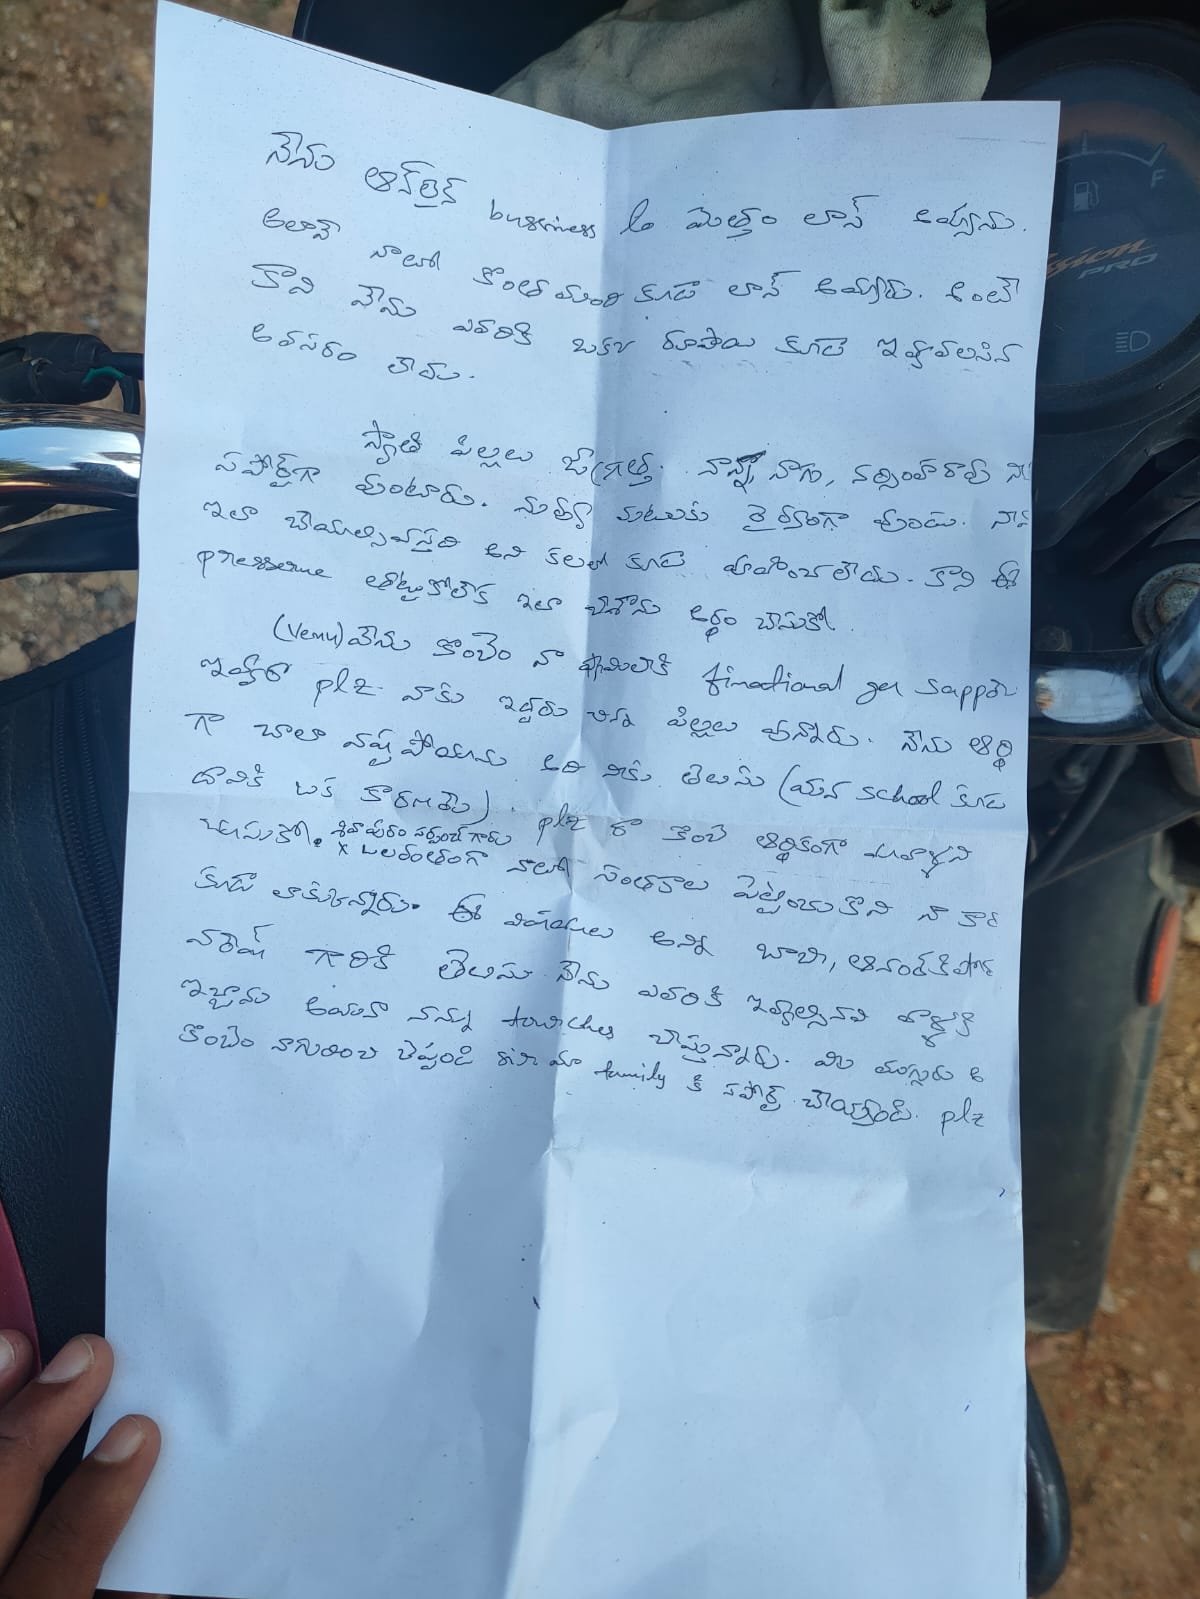 నేను ఆన్‌లైన్ bussiness లో మొత్తం లాస్ అయ్యాను.
అలానే నాతో కొంతమంది కూడా లాస్ అయ్యారు. అంటే
కాని నేను ఎవరికి ఒక్క రూపాయి కూడా ఇవ్వవలసిన
అవసరం లేదు.
స్వాతి పిల్లలు జాగ్రత్త. నాన్న, నాగం, నర్సింహారావు నీ
సపోర్ట్‌గా వుంటారు. నువ్వు మటుకు ధైర్యంగా వుండు. నాన్న
ఇలా చేయాల్సివస్తది అని కలలో కూడా ఊహించలేదు. కాని ఈ
presserue తట్టుకోలేక ఇలా చేశాను అర్థం చేసుకో.
(Venu) వేను కొంచెం నా ఫ్యామిలికి finactional ger support
ఇవ్వరా plz. నాకు ఇద్దరు చిన్న పిల్లలు వున్నారు. నేను ఆర్థి
గా చాలా నష్టపోయాను అది నీకు తెలుసు (మన school కూడ
దానికి ఒక కారణమే). plz రా కొంచె ఆర్థికంగా
చూసుకో. శివాపురం సర్పంచ్ గారు
x బలవంతంగా నాతో సంతకాలు పెట్టించుకొని నా కారు
కూడా లాక్కున్నారు. ఈ విషయాలు అన్ని బాబా, ఆనంద్‌కిషోర్
నరేష్ గారికి తెలుసు. నేను ఎవరికి ఇవ్వాల్సినవి వాళ్ళకి
ఇచ్చాను అయినా నన్ను touches చేస్తున్నారు. మీ ముగ్గురు
కొంచెం నాగురించి చెప్పండి sir మా family కి సపోర్ట్ చేయ్యండి. plz